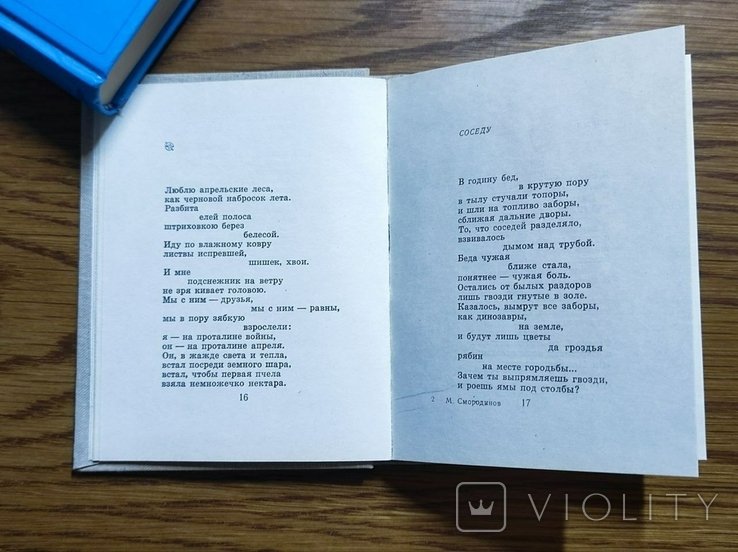 Люблю апрельские леса,
как черновой набросок лета.
Разбита
елей полоса
штриховкою берез
белесой.
Иду по влажному ковру
листвы испревшей,
шишек, хвои.
И мне
подснежник на ветру
не зря кивает головою.
Мы с ним — друзья,
мы с ним — равны,
мы в пору зябкую
взрослели:
я — на проталине войны,
он — на проталине апреля.
Он, в жажде света и тепла,
встал посреди земного шара,
встал, чтобы первая пчела
взяла немножечко нектара.
16
СОСЕДУ
В годину бед,
в крутую пору
в тылу стучали топоры,
и шли на топливо заборы,
сближая дальние дворы.
То, что соседей разделяло,
взвивалось
дымом над трубой.
Беда чужая
ближе стала,
понятнее — чужая боль.
Остались от былых раздоров
лишь гвозди гнутые в золе.
Казалось, вымрут все заборы,
как динозавры,
на земле,
и будут лишь цветы
да гроздья
рябин
на месте городьбы...
Зачем ты выпрямляешь гвозди,
и роешь ямы под столбы?
2 М. Смородинов 17
VIOLITY